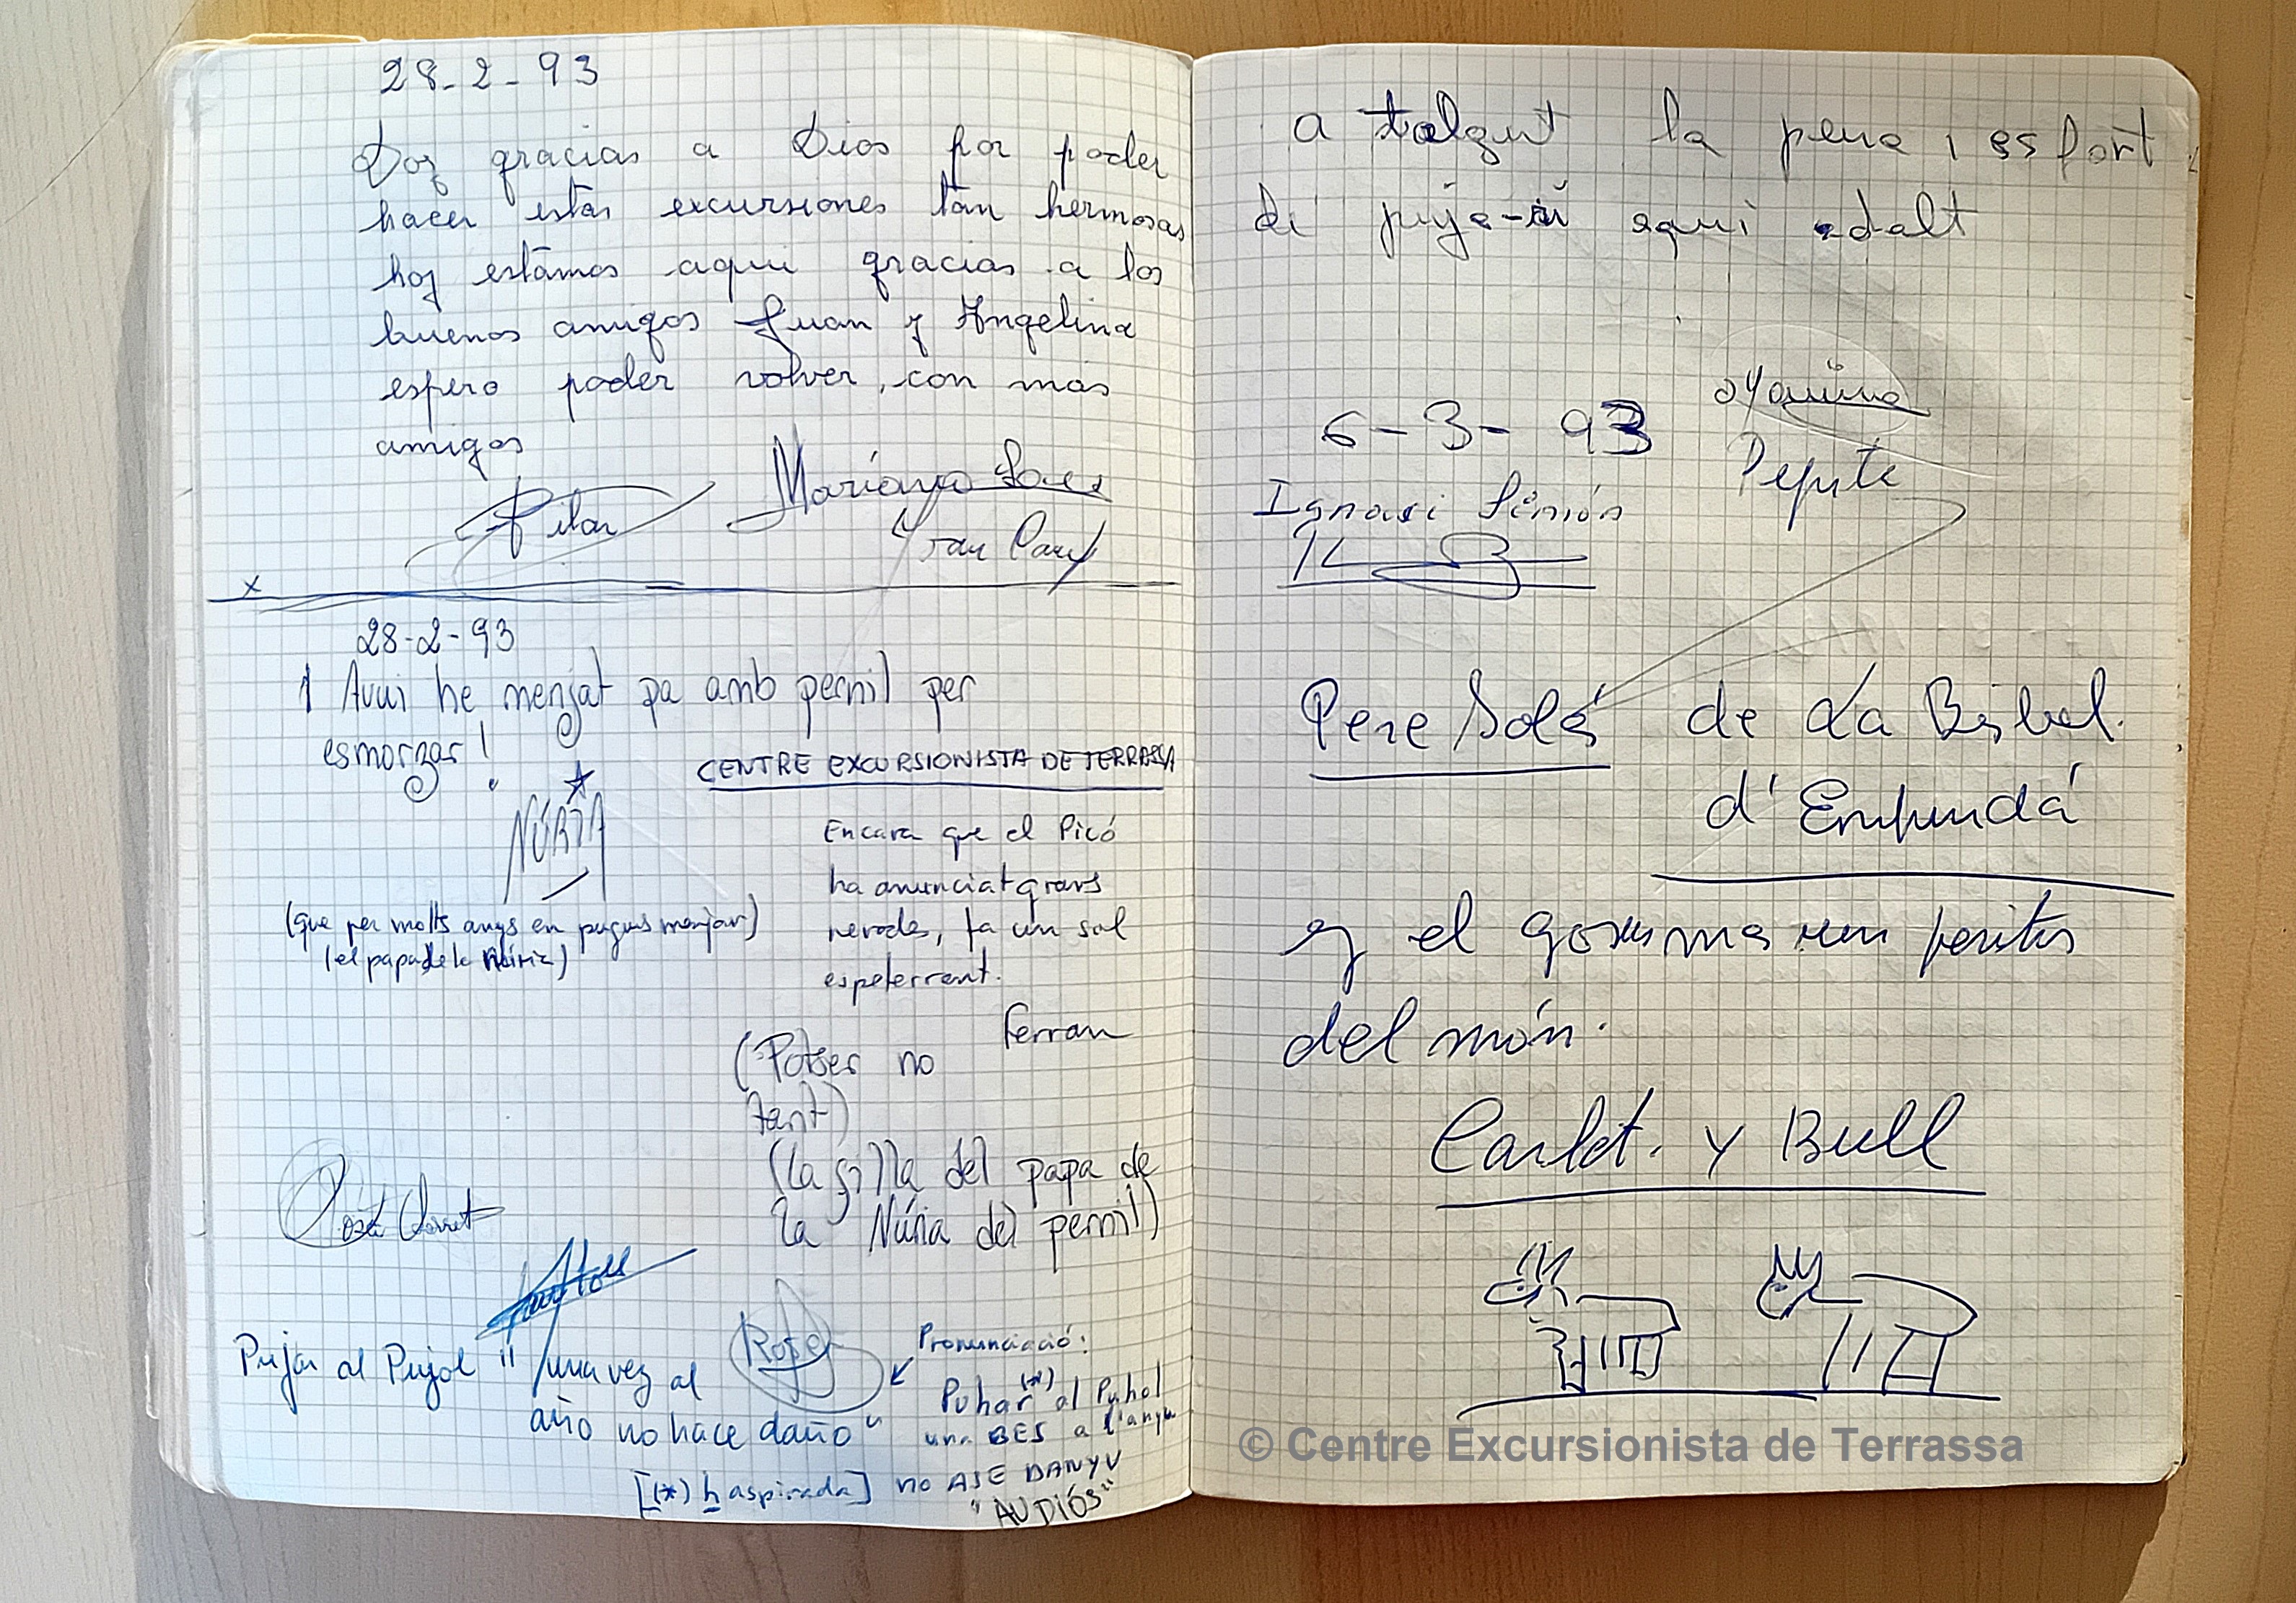 28-2-93
Doy gracias a Dios por poder
hacer estas excursiones tan hermosas
hoy estamos aqui gracias a los
buenos amigos Juan y Angelina
espero poder volver, con mas
amigos
Pilar
Mariano
x
28-2-93
1 Avui he menjat pa amb pernil per
esmorzar!
NÚRIA
(que per molts anys en puguis menjar)
(el papa de la Núria)
CENTRE EXCURSIONISTA DE TERRASSA
Encara que el Picó
ha anunciat grans
nevades, fa un sol
espeterrant.
Ferran
(Potser no
tant)
(la silla del papa de
la Núria del pernil)
José
Pujar al Pujol "una vez al
año no hace daño"
Roser
Pronunciació:
Puhar (*) al Puhol
una BES a l'anyu
no ASE DANYU
[(*) h aspirada]
"AUDIÓS"
a valgut la pena i esfort
de puja-ri aqui adalt
6-3-93
Pepita
Ignasi Simón
Pere Solá de La Bisbal.
d'Empurdá
y el gossus mes
del món.
Carlot. y Bull
© Centre Excursionista de Terrassa